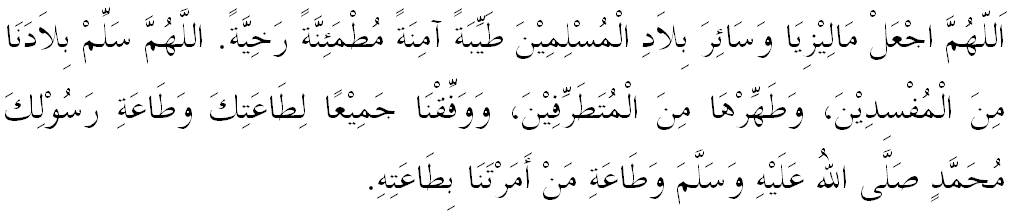 اَللّهُمَّ اجْعَلْ مَالِيْزِيَا وَسَائِرَ بِلاَدِ الْمُسْلِمِيْنَ طَيِّبَةً آمِنَةً مُطْمَئِنَّةً رَخِيَّةً. اللَّهُمَّ سَلِّمْ بِلاَدَنَا
مِنَ الْمُفْسِدِيْنَ، وَطَهِّرْهَا مِنَ الْمُتَطَرِّفِيْنَ، وَوَفِّقْنَا جَمِيْعًا لِطَاعَتِكَ وَطَاعَةِ رَسُوْلِكَ
مُحَمَّدٍ صَلَّى اللهُ عَلَيْهِ وَسَلَّمَ وَطَاعَةِ مَنْ أَمَرْتَنَا بِطَاعَتِهِ.